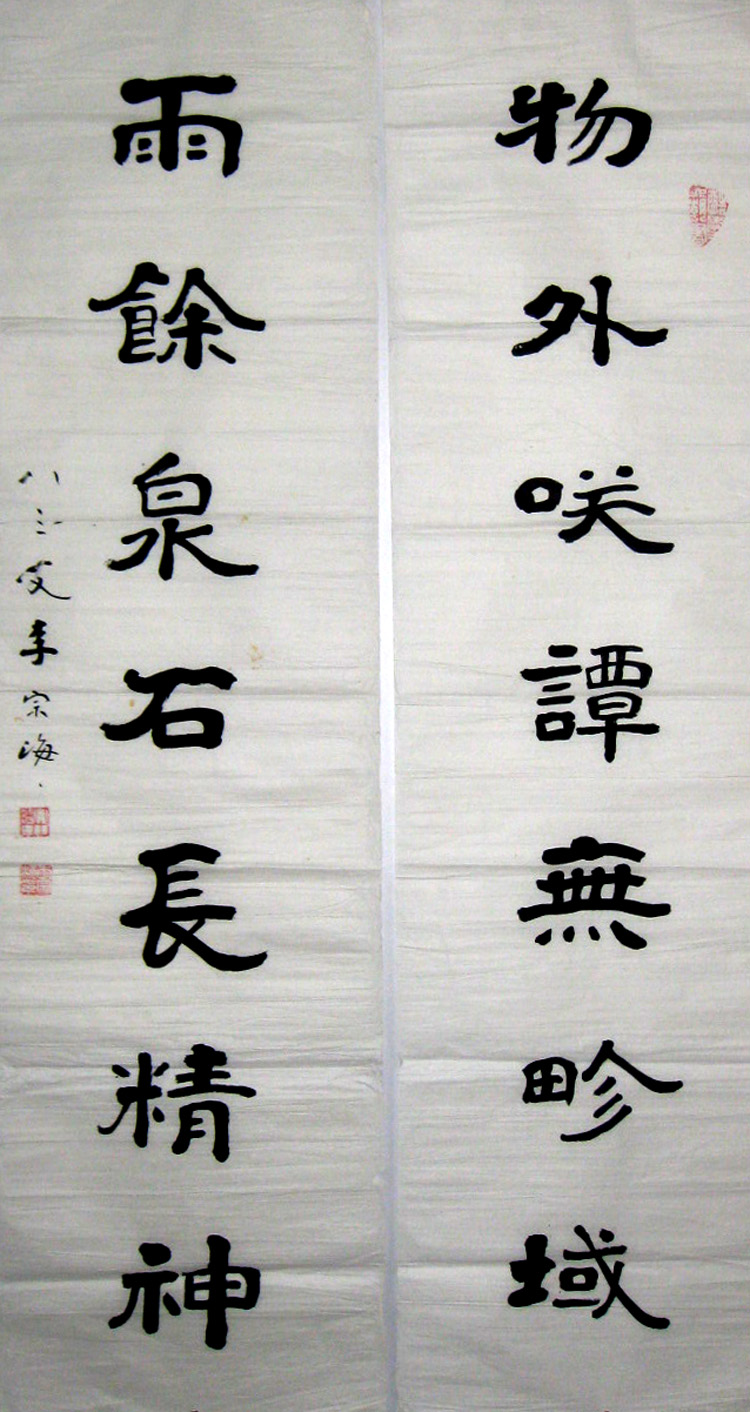 物外咲譚無畛域
雨餘泉石長精神
八三叟李宗海